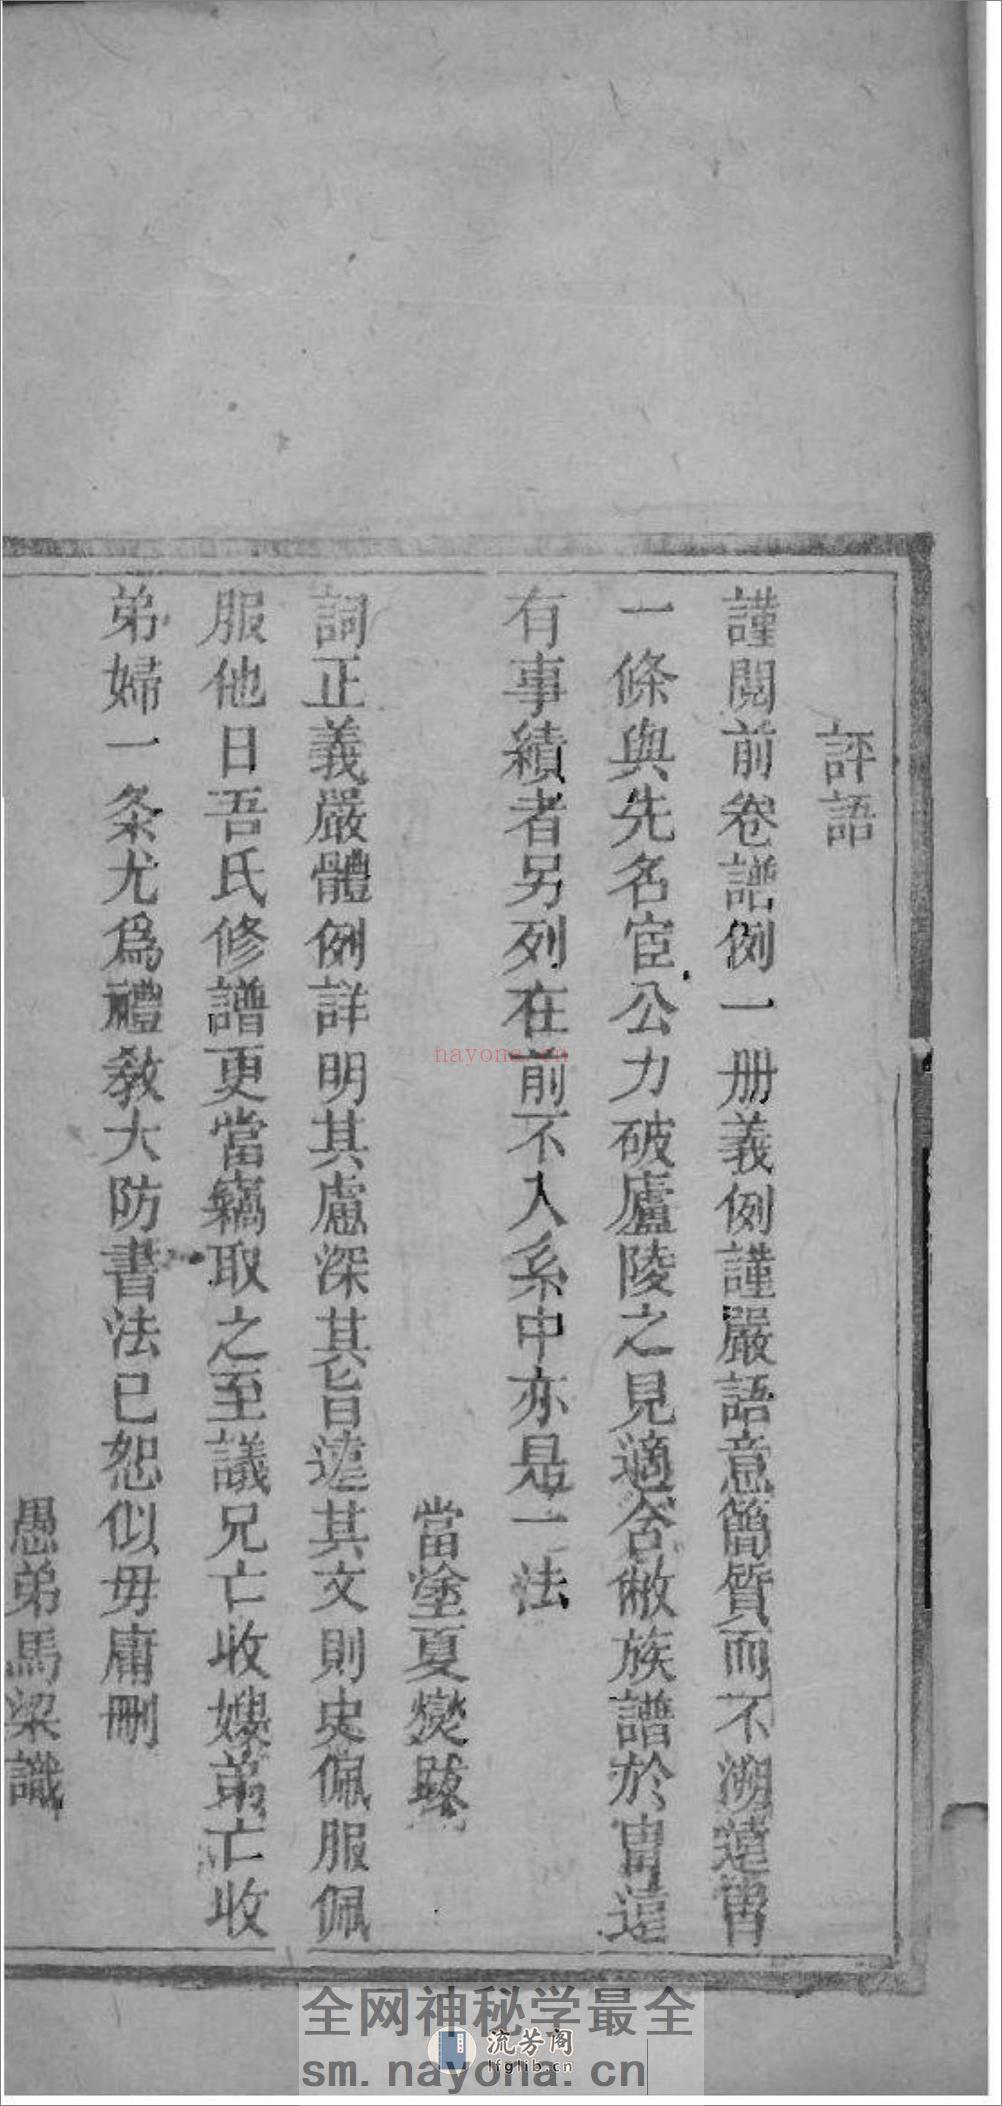 評語
謹閱前卷譜例一册義例謹嚴語意簡質而不溯遠胄
一條與先名宦公力破廬陵之見適合敝族譜於胄遠
有事績者另列在前不入系中亦是一法
當塗夏燮跋
詞正義嚴體例詳明其慮深其旨遠其文則史佩服佩
服他日吾氏修譜更當竊取之至議兄亡收嫂弟亡收
弟婦一条尤爲禮敎大防書法已恕似毋庸刪
愚弟馬梁識
nayona.cn
全网神秘学最全
流芳阁
lfglib.cn
sm.nayona.cn